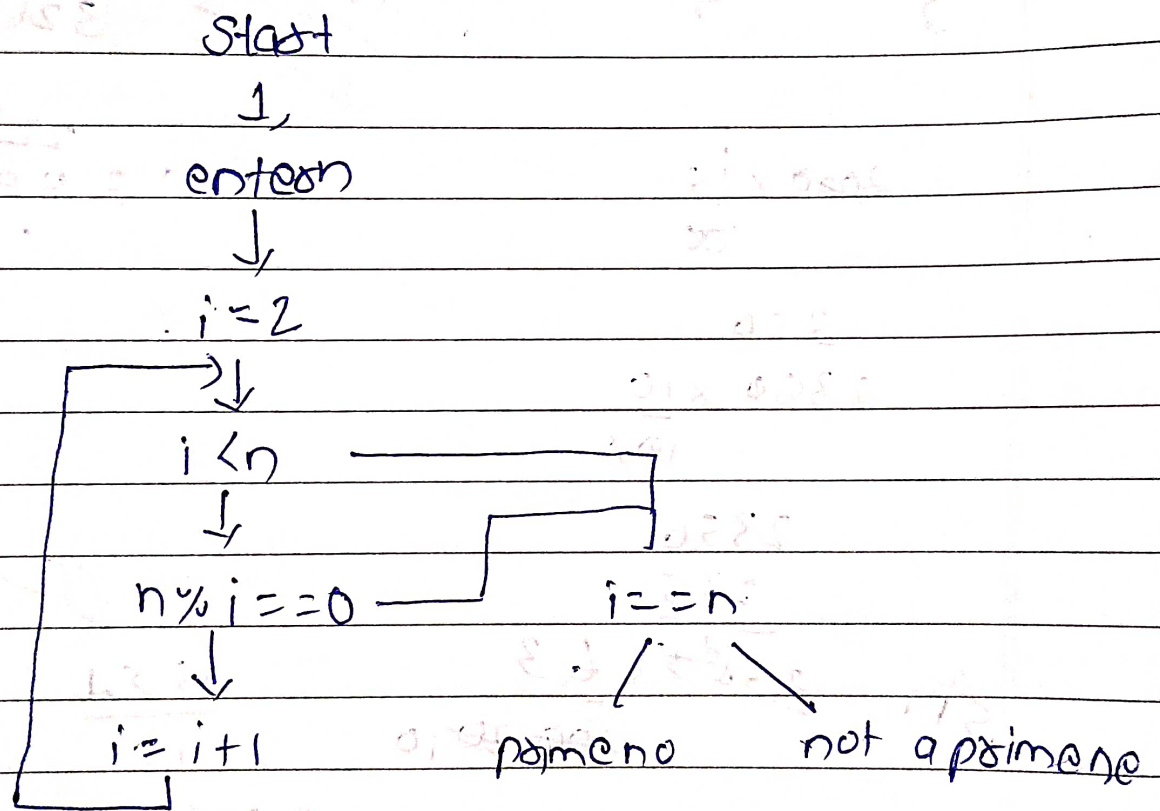 Start
enter n
i = 2
i < n
n % i == 0
i == n
i = i + 1
prime no
not a prime no